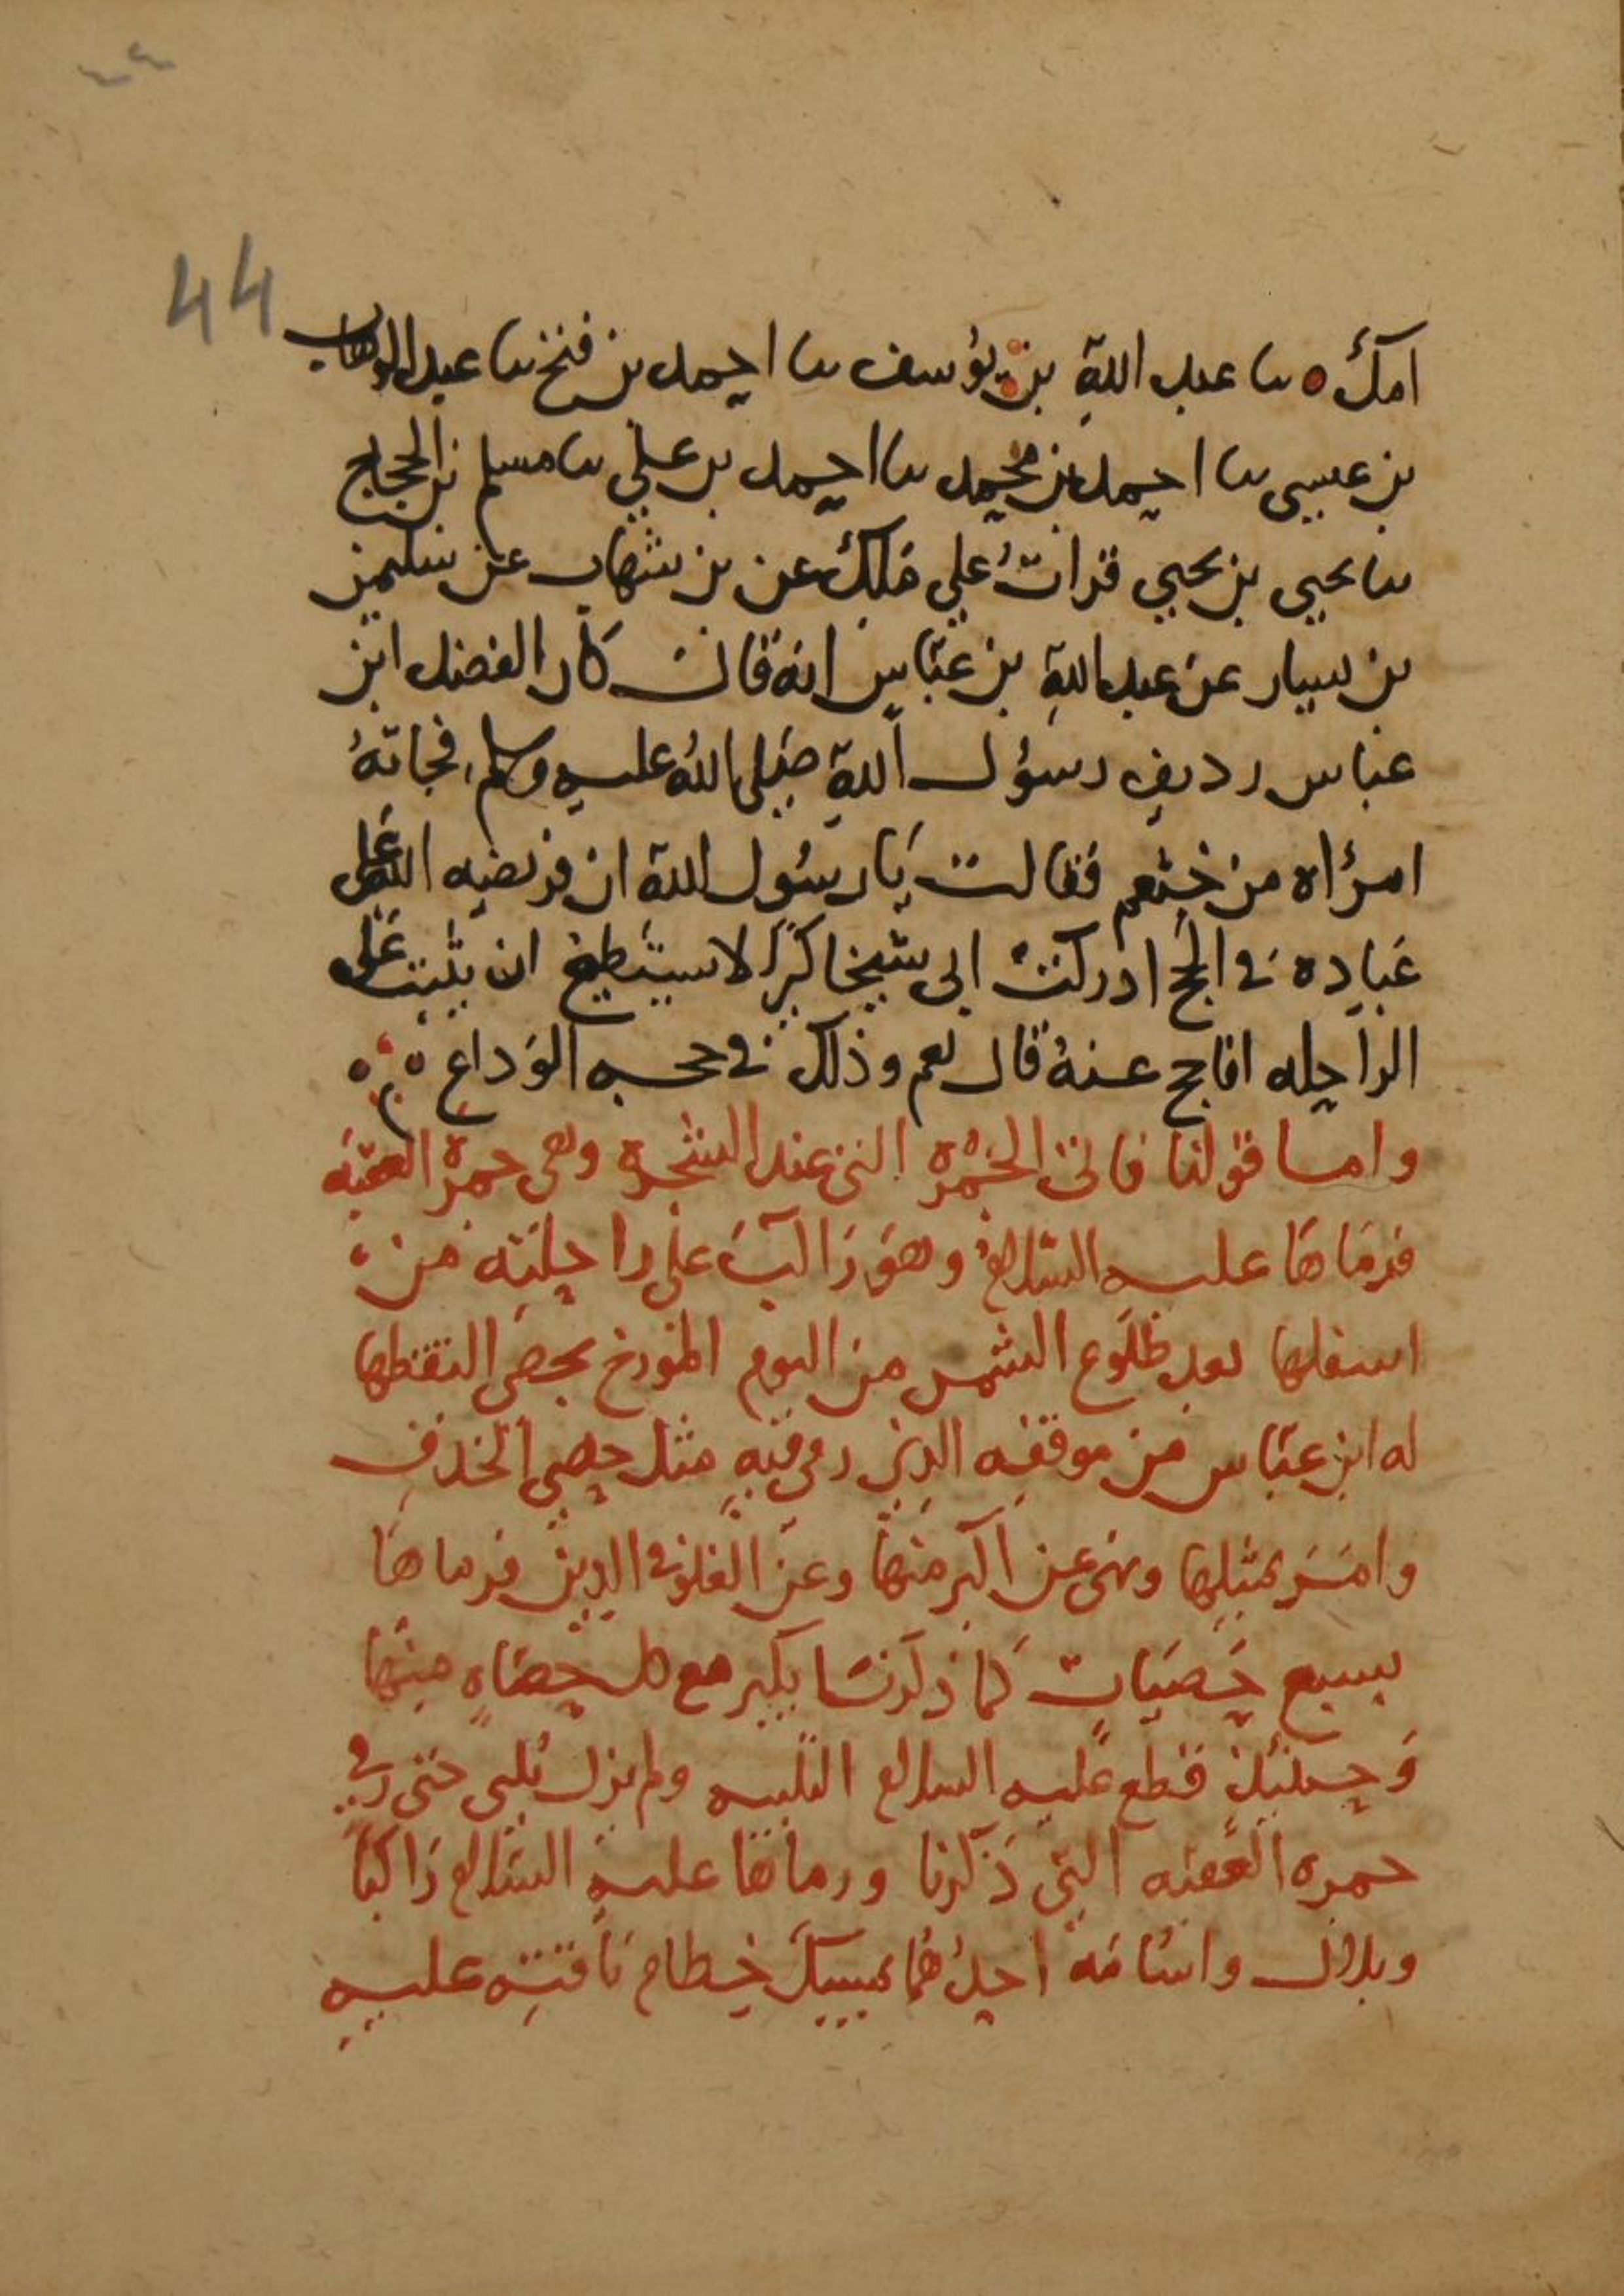 ٤٤
44
امك ٥ ںا عبد الله بن يوسف ںا احمد بن فتح ںا عبد الوهاب
بن عيسى ںا احمد بن محمد ںا احمد بن علي ںا مسلم بن الحجاج
ںا يحيي بن يحيي قرات علي ملك عن بن شهاب عن سليمن
بن يسار عن عبد الله بن عباس انه قال كان الفضل ابن
عباس رديف رسول الله صلى الله عليه وسلم فجاته
امراه من خثعم فقالت يا رسول الله ان فريضه الله على
عباده في الحج ادركت ابى شيخا كبيرا لا يستطيع ان يثبت على
الراحله افاحج عنه قال نعم وذلك في حجه الوداع
واما قولنا فاتى الجمرة التى عند الشجرة وهى جمرة العقبه
فرماها عليه السلام وهو راكب على راحلته من
اسفلها بعد طلوع الشمس من اليوم المؤرخ بحصى التقطها
له ابن عباس من موقفه الذي رمى فيه مثل حصى الخذف
وامر بمثلها ونهى عن اكبر منها وعن الغلو في الدين فرماها
بسبع حصيات كما ذكرنا يكبر مع كل حصاه منها
وحينئذ قطع عليه السلام التلبيه ولم يزل يلبى حتى رمى
جمره العقبه التي ذكرنا ورماها عليه السلام راكبا
وبلال واسامه احدهما يمسك خطام ناقته عليه